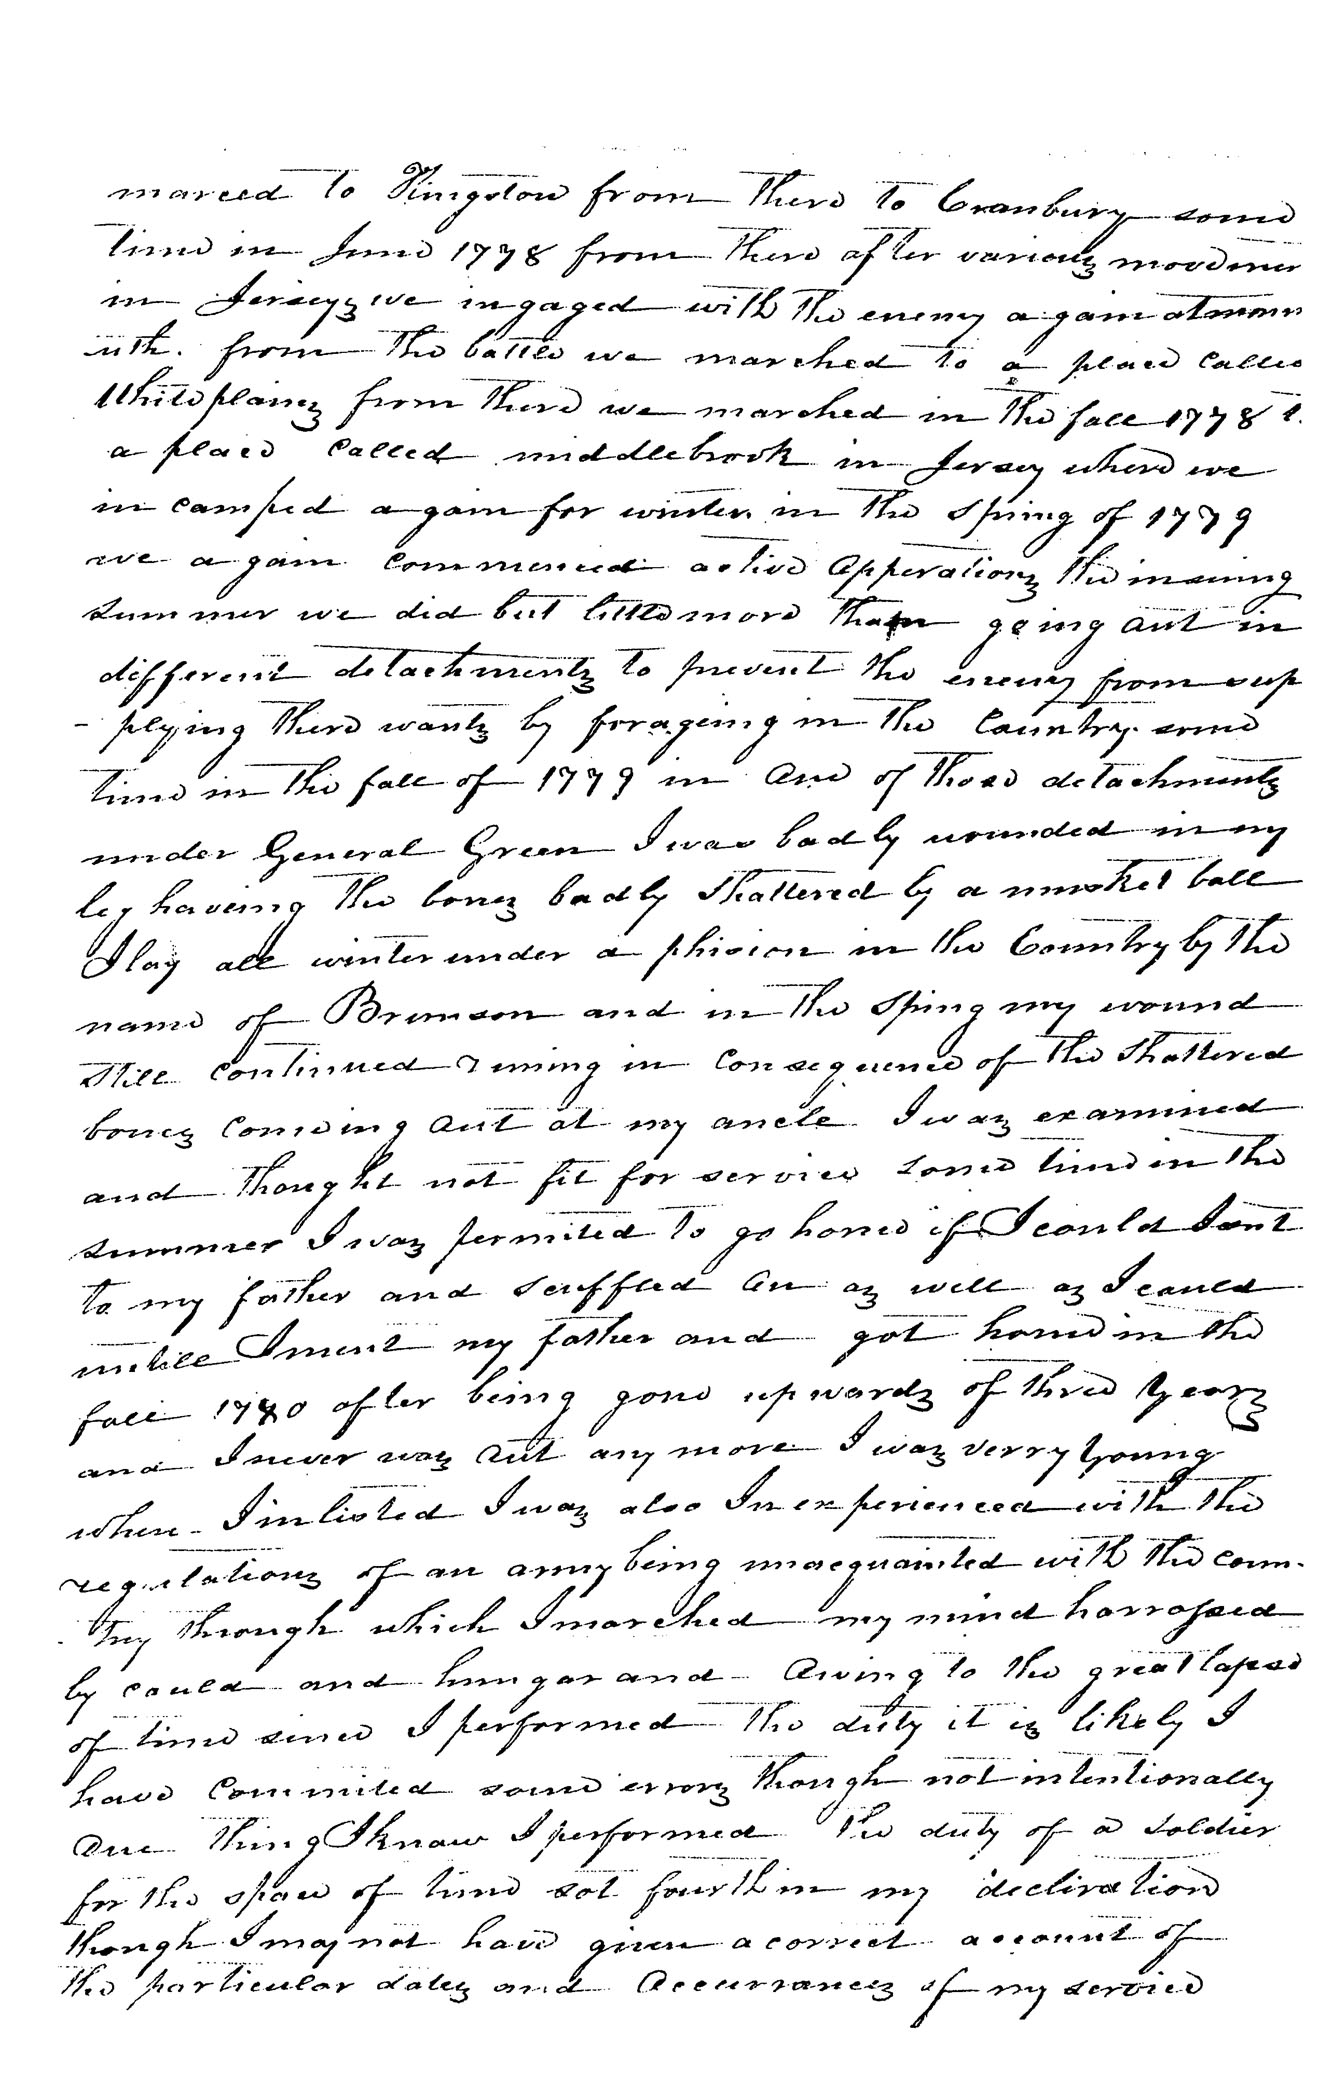 marced to Kingston from there to Cranbury some
time in June 1778 from there after various movemen
in Jersey we ingaged with the enemy again at monm
uth. from the battle we marched to a place called
Whiteplains from there we marched in the fall 1778 t.
a place called middlebrook in Jersey where we
in camped again for winter. in the Sping of 1779
we again commenced active Apperations the insuing
summer we did but little more than going aut in
different detachments to prevent the enemy from sup
- plying there wants by forageing in the Cauntry. some
time in the fall of 1779 in one of those detachments
under General Green I was badly wounded in my
leg haveing the bones badly Shattered by a musket ball
I lay all winter under a phision in the Country by the
name of Brunson and in the Sping my wound
Still continued runing in Consequence of the Shattered
bones comeing aut at my ancle I was examined
and thought not fit for service some time in the
summer I was permited to go home if I could I sent
to my father and scuffled on as well as I could
untill I ment my father and got home in the
fall 1780 after being gone upwards of three Years
and I never was aut any more I was verry Young
when I inlisted I was also In experienced with the
regulations of an army being unacquainted with the coun-
try through which I marched my mind harrassed
by could and hungar and owing to the great lapse
of time since I performed the duty it is likely I
have commited some errors though not intentionally
one thing I knaw I performed the duty of a soldier
for the space of time sot fourth in my decliration
though I may not have given a correct account of
the particular dates and Occurrances of my service